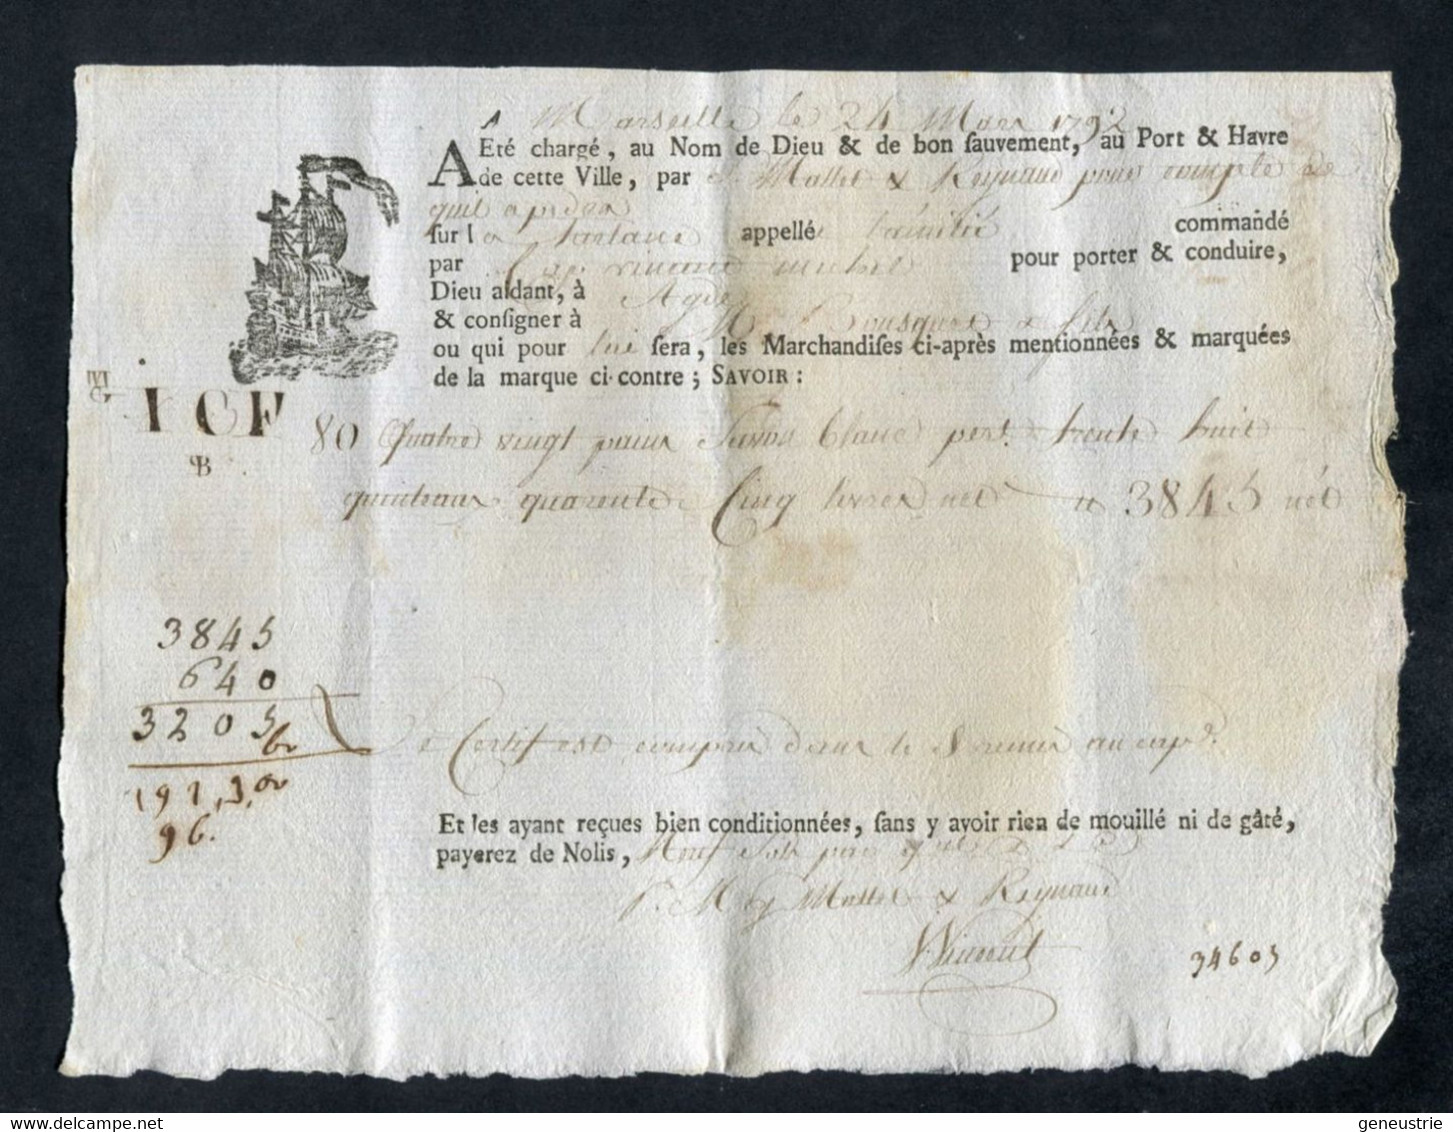 A Marseille le 24 Mars 1792
A Eté chargé, au Nom de Dieu & de bon sauvement, au Port & Havre
de cette Ville, par Mallet & Reynaud pour compte de
qui apdra
sur la tartane appellé l'amitié commandé
par Cap. vincent michel pour porter & conduire,
Dieu aidant, à Agde
& consigner à Mr Bousquet & fils
ou qui pour lui sera, les Marchandises ci-après mentionnées & marquées
de la marque ci-contre; SAVOIR:
ICF
B
80 Quatre vingt pains Savon blanc pest. trente huit
quintaux quarente Cinq livres net 3845 net
3845
640
3205
6
191,3,
96.
Certif est compris dans le au cap.
Et les ayant reçues bien conditionnées, sans y avoir rien de mouillé ni de gâté,
payerez de Nolis, Neuf sols par qal
P. Mallet & Reynaud
Vincent
34605
delcampe.net
geneustrie